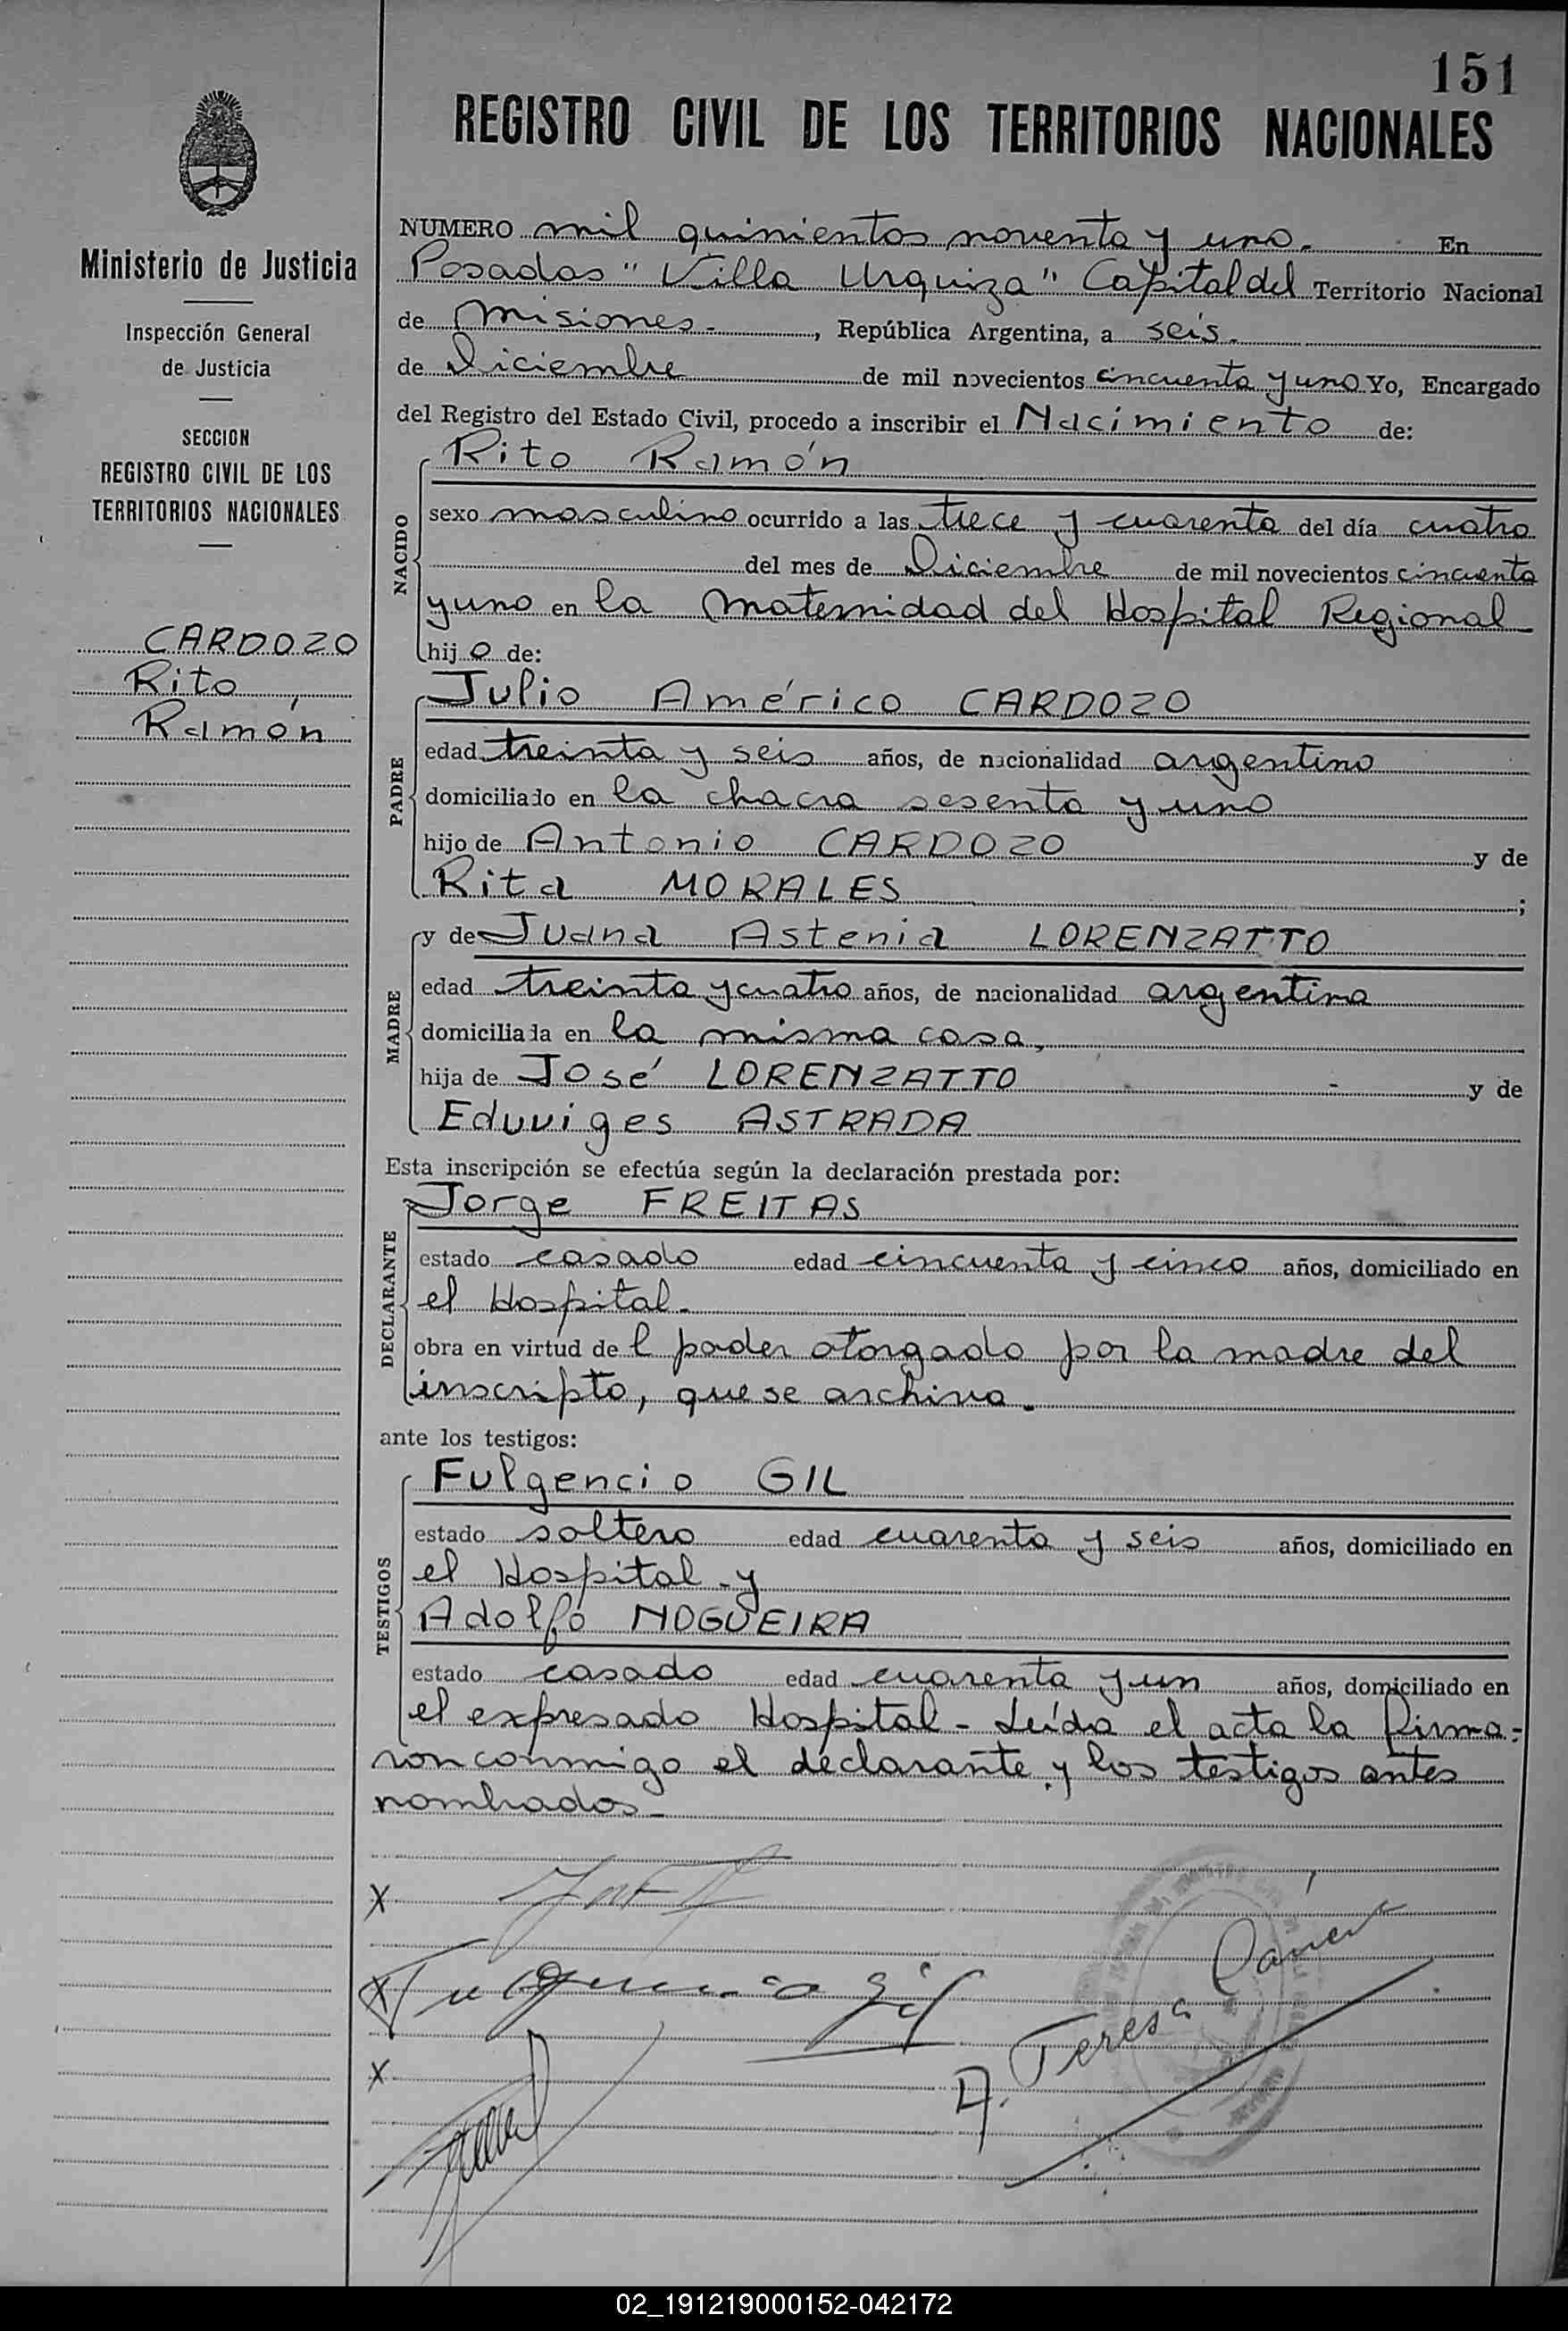 151
REGISTRO CIVIL DE LOS TERRITORIOS NACIONALES
Ministerio de Justicia
Inspección General
de Justicia
SECCION
REGISTRO CIVIL DE LOS
TERRITORIOS NACIONALES
CARDOZO
Rito
Ramón
NUMERO mil quinientos noventa y uno. En
Posadas "Villa Urquiza" Capital del Territorio Nacional
de Misiones. , República Argentina, a seis.
de Diciembre de mil novecientos cincuenta y uno Yo, Encargado
del Registro del Estado Civil, procedo a inscribir el Nacimiento de:
Rito Ramón
NACIDO
sexo masculino ocurrido a las trece y cuarenta del día cuatro
del mes de Diciembre de mil novecientos cincuenta
y uno en la Maternidad del Hospital Regional
hijo de:
Julio Américo CARDOZO
PADRE
edad treinta y seis años, de nacionalidad argentino
domiciliado en la chacra sesenta y uno
hijo de Antonio CARDOZO y de
Rita MORALES ;
y de Juana Astenia LORENZATTO
MADRE
edad treinta y cuatro años, de nacionalidad argentina
domiciliada en la misma casa,
hija de José LORENZATTO y de
Eduviges ASTRADA
Esta inscripción se efectúa según la declaración prestada por:
Jorge FREITAS
DECLARANTE
estado casado edad cincuenta y cinco años, domiciliado en
el Hospital.
obra en virtud del poder otorgado por la madre del
inscripto, que se archiva.
ante los testigos:
Fulgencio GIL
TESTIGOS
estado soltero edad cuarenta y seis años, domiciliado en
el Hospital - y
Adolfo NOGUEIRA
estado casado edad cuarenta y un años, domiciliado en
el expresado Hospital - Leída el acta la firma-
ron conmigo el declarante y los testigos antes
nombrados -
X
X Fulgencio Gil
X
A. Teresa
02_191219000152-042172